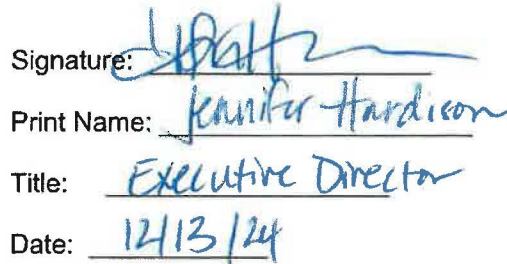 Signature:
Print Name: Jennifer Hardison
Title: Executive Director
Date: 12/13/24